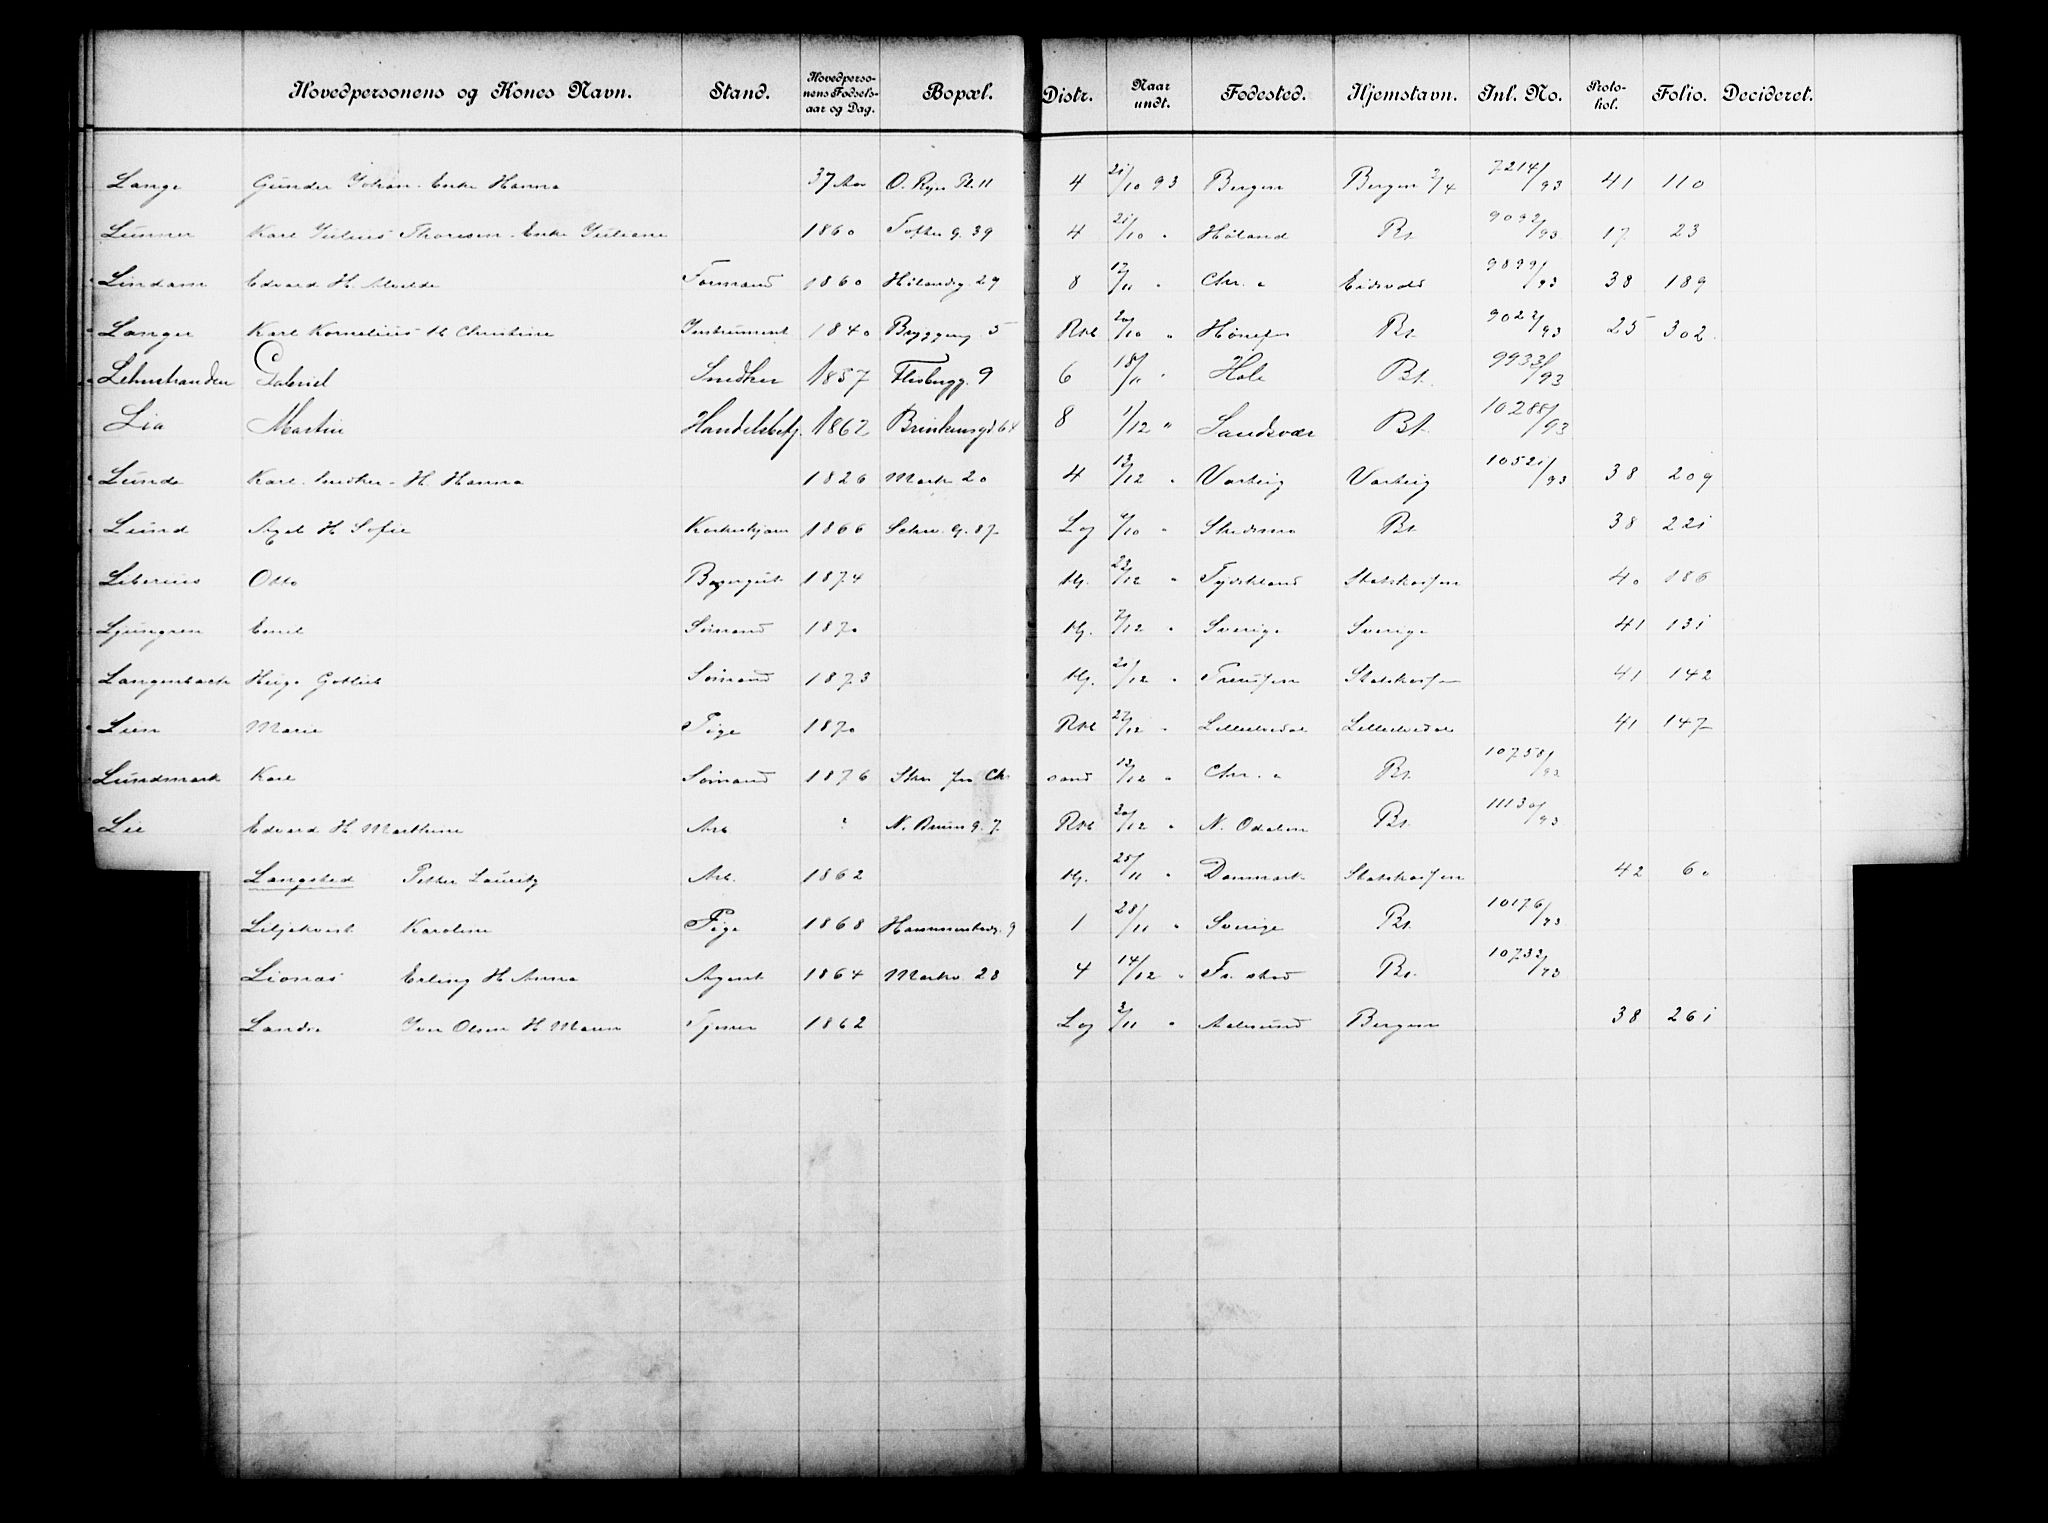 Hovedpersonens og Kones Navn. Stand. Hovedperso-nens Fødsels-aar og Dag. Bopæl. Distr. Naar undt. Fødested. Hjemstavn. Inl. No. Proto-kol. Folio. Decideret.
Lange Gunder Johan. Enke Hanna 37 Aar O. Ryes Pl. 11 4 21/10 93 Bergen Bergen 7214/93 41 110
Lunner Karl Julius Thoresen. Enke Juliane 1860 Tofte g. 39 4 21/10 " Høland Bt. 9092/93 17 23
Lindam Edvard H. Alvilde Formand 1860 Hølandsg. 29 8 17/11 " Chr. a Eidsvold 9899/93 38 189
Langer Karl Kornelius H Christine Instrument 1840 Bryggerg. 5 20/10 " Hønefos Bt. 9022/93 25 302
Gabriel Snedker 1857 9 6 18/11 " Hole Bt. 9933/93
Lia Martin Handelsbetj. 1862 64 8 1/12 " Sandsvær Bt. 10288/93
Lunde Karl. Snedker. H Hanna 1826 Markv 20 4 13/12 " Varteig Varteig 10521/93 38 209
Lund Axel H Sofie 1866 Schw. g. 87 Log /10 " Skedsmo Bt. 38 221
Liberius Otto 1874 Hj. 23/12 " Tydskland Statskassen 40 186
Ljungren Emil Sømand 1870 Hj. 7/12 " Sverige Sverige 41 131
Langenback Hugo Gotlieb Sømand 1873 Hj. 20/12 " Preussen Statskassen 41 142
Lien Marie Pige 1870 27/12 " Lilleelvedal Lilleelvedal 41 147
Lundmark Karl Sømand 1876 13/12 " Chr. a Bt. 10758/93
Lie Edvard H Marthine Arb ? N. Bruun g. 7. 30/12 " N. Odalen Bt. 11130/93
Langsted Petter Lauritz Arb. 1862 Hj. 25/11 " Danmark Statskassen 42 60
Liljekvist Karoline Pige 1868 9 1 28/11 " Sverige Bt. 10176/93
Lionæs Erling H Anna Agent 1864 Markv 28 4 14/12 " Fr. stad Bt. 10732/93
Landro Iver Olsen H Maren Tjener 1862 Log 3/11 " Aalesund Bergen 38 261